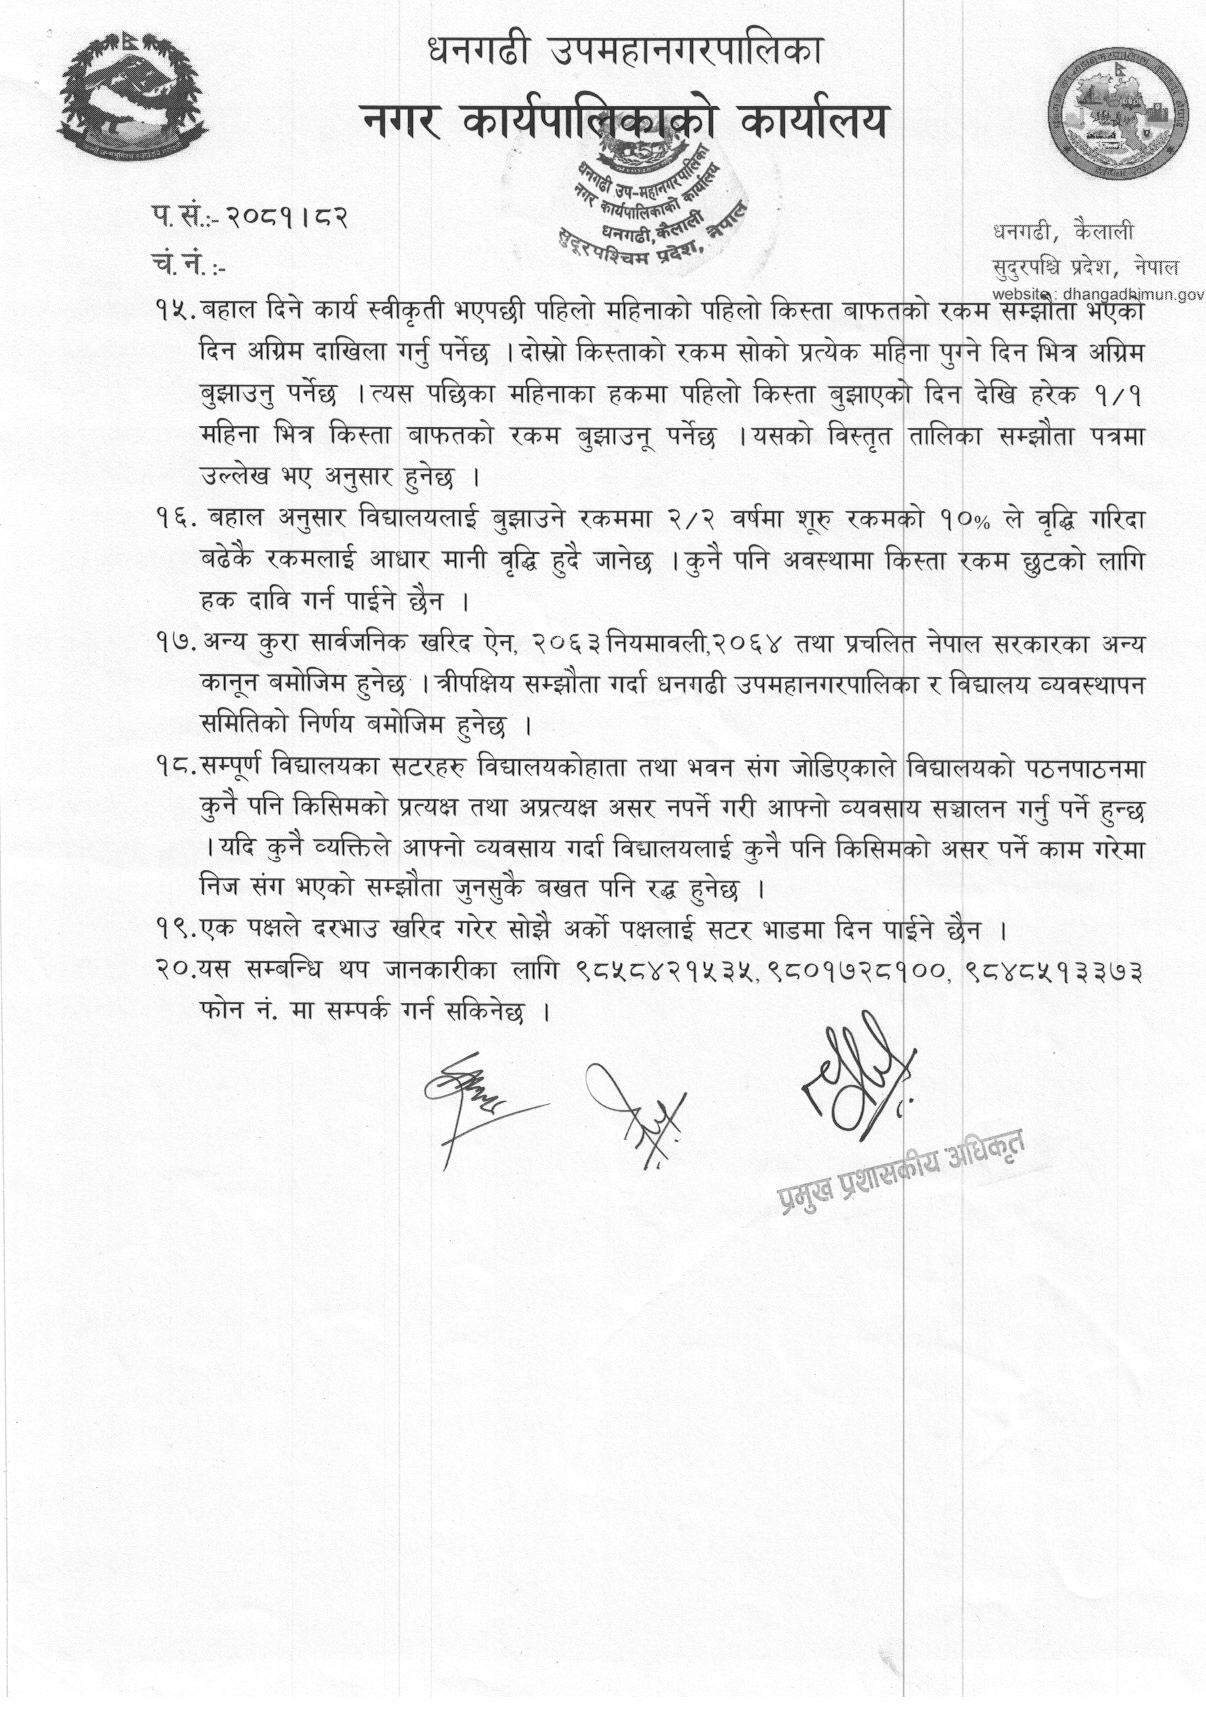 धनगढी उपमहानगरपालिका
नगर कार्यपालिकाको कार्यालय
धनगढी उप-महानगरपालिका
नगर कार्यपालिकाको कार्यालय
धनगढी, कैलाली
सुदूरपश्चिम प्रदेश, नेपाल
प. सं.:- २०८१।८२
चं. नं. :-
धनगढी, कैलाली
सुदुरपश्चि प्रदेश, नेपाल
website : dhangadhimun.gov
१५. बहाल दिने कार्य स्वीकृती भएपछी पहिलो महिनाको पहिलो किस्ता बाफतको रकम सम्झौता भएको
दिन अग्रिम दाखिला गर्नु पर्नेछ । दोस्रो किस्ताको रकम सोको प्रत्येक महिना पुग्ने दिन भित्र अग्रिम
बुझाउनु पर्नेछ । त्यस पछिका महिनाका हकमा पहिलो किस्ता बुझाएको दिन देखि हरेक १/१
महिना भित्र किस्ता बाफतको रकम बुझाउनू पर्नेछ । यसको विस्तृत तालिका सम्झौता पत्रमा
उल्लेख भए अनुसार हुनेछ ।
१६. बहाल अनुसार विद्यालयलाई बुझाउने रकममा २/२ वर्षमा शूरु रकमको १०% ले वृद्धि गरिदा
बढेकै रकमलाई आधार मानी वृद्धि हुदै जानेछ । कुनै पनि अवस्थामा किस्ता रकम छुटको लागि
हक दावि गर्न पाईने छैन ।
१७. अन्य कुरा सार्वजनिक खरिद ऐन, २०६३ नियमावली,२०६४ तथा प्रचलित नेपाल सरकारका अन्य
कानून बमोजिम हुनेछ । त्रीपक्षिय सम्झौता गर्दा धनगढी उपमहानगरपालिका र विद्यालय व्यवस्थापन
समितिको निर्णय बमोजिम हुनेछ ।
१८. सम्पूर्ण विद्यालयका सटरहरु विद्यालयकोहाता तथा भवन संग जोडिएकाले विद्यालयको पठनपाठनमा
कुनै पनि किसिमको प्रत्यक्ष तथा अप्रत्यक्ष असर नपर्ने गरी आफ्नो व्यवसाय सञ्चालन गर्नु पर्ने हुन्छ
। यदि कुनै व्यक्तिले आफ्नो व्यवसाय गर्दा विद्यालयलाई कुनै पनि किसिमको असर पर्ने काम गरेमा
निज संग भएको सम्झौता जुनसुकै बखत पनि रद्ध हुनेछ ।
१९. एक पक्षले दरभाउ खरिद गरेर सोझै अर्को पक्षलाई सटर भाडमा दिन पाईने छैन ।
२०. यस सम्बन्धि थप जानकारीका लागि ९८५८४२१५३५, ९८०१७२८१००, ९८४८५१३३७३
फोन नं. मा सम्पर्क गर्न सकिनेछ ।
प्रमुख प्रशासकीय अधिकृत